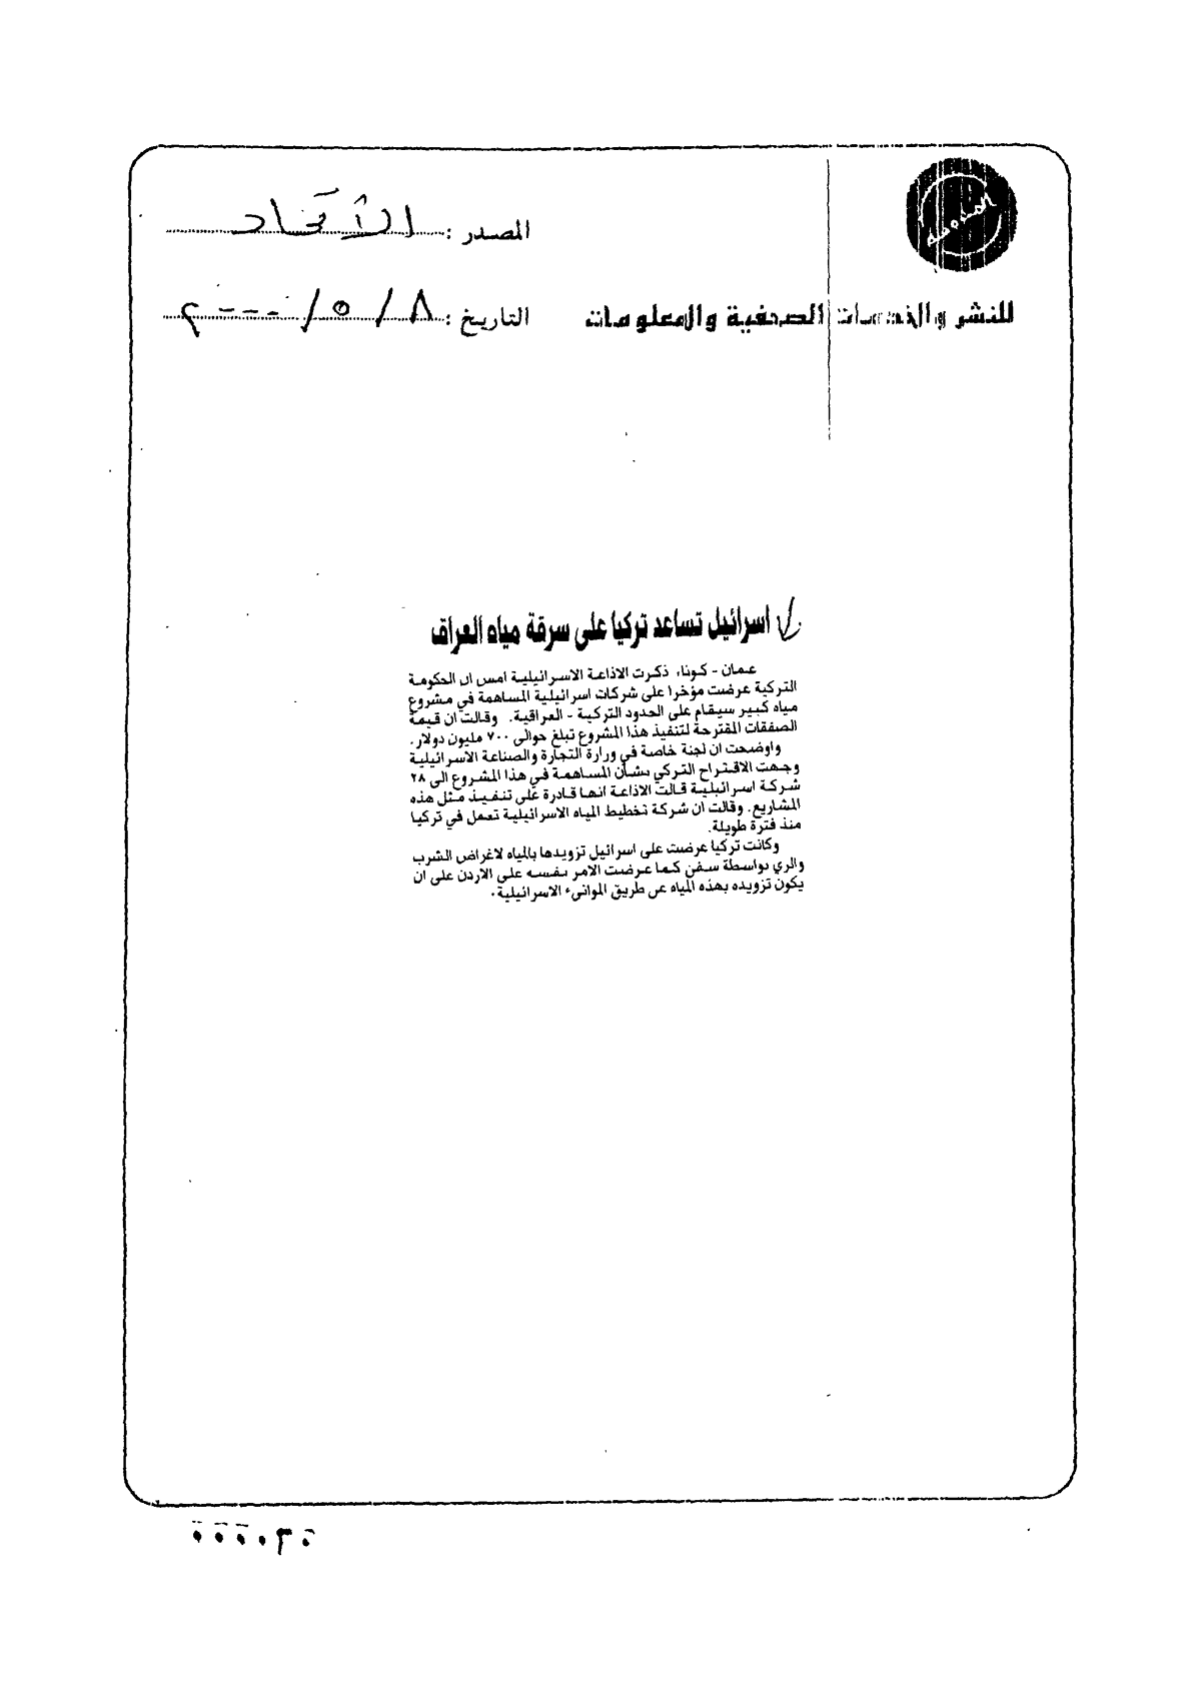 المصدر : الاتحاد
للنشر والخدمات الصحفية والمعلومات
التاريخ : ٨ / ٥ / ٢٠٠٠
اسرائيل تساعد تركيا على سرقة مياه العراق
عمان - كونا، ذكرت الاذاعة الاسرائيلية امس ان الحكومة
التركية عرضت مؤخرا على شركات اسرائيلية المساهمة في مشروع
مياه كبير سيقام على الحدود التركية - العراقية. وقالت ان قيمة
الصفقات المقترحة لتنفيذ هذا المشروع تبلغ حوالى ٧٠٠ مليون دولار.
واوضحت ان لجنة خاصة في وزارة التجارة والصناعة الاسرائيلية
وجهت الاقتراح التركي بشأن المساهمة في هذا المشروع الى ٢٨
شركة اسرائيلية قالت الاذاعة انها قادرة على تنفيذ مثل هذه
المشاريع. وقالت ان شركة تخطيط المياه الاسرائيلية تعمل في تركيا
منذ فترة طويلة.
وكانت تركيا عرضت على اسرائيل تزويدها بالمياه لاغراض الشرب
والري بواسطة سفن كما عرضت الامر نفسه على الاردن على ان
يكون تزويده بهذه المياه عن طريق الموانىء الاسرائيلية.